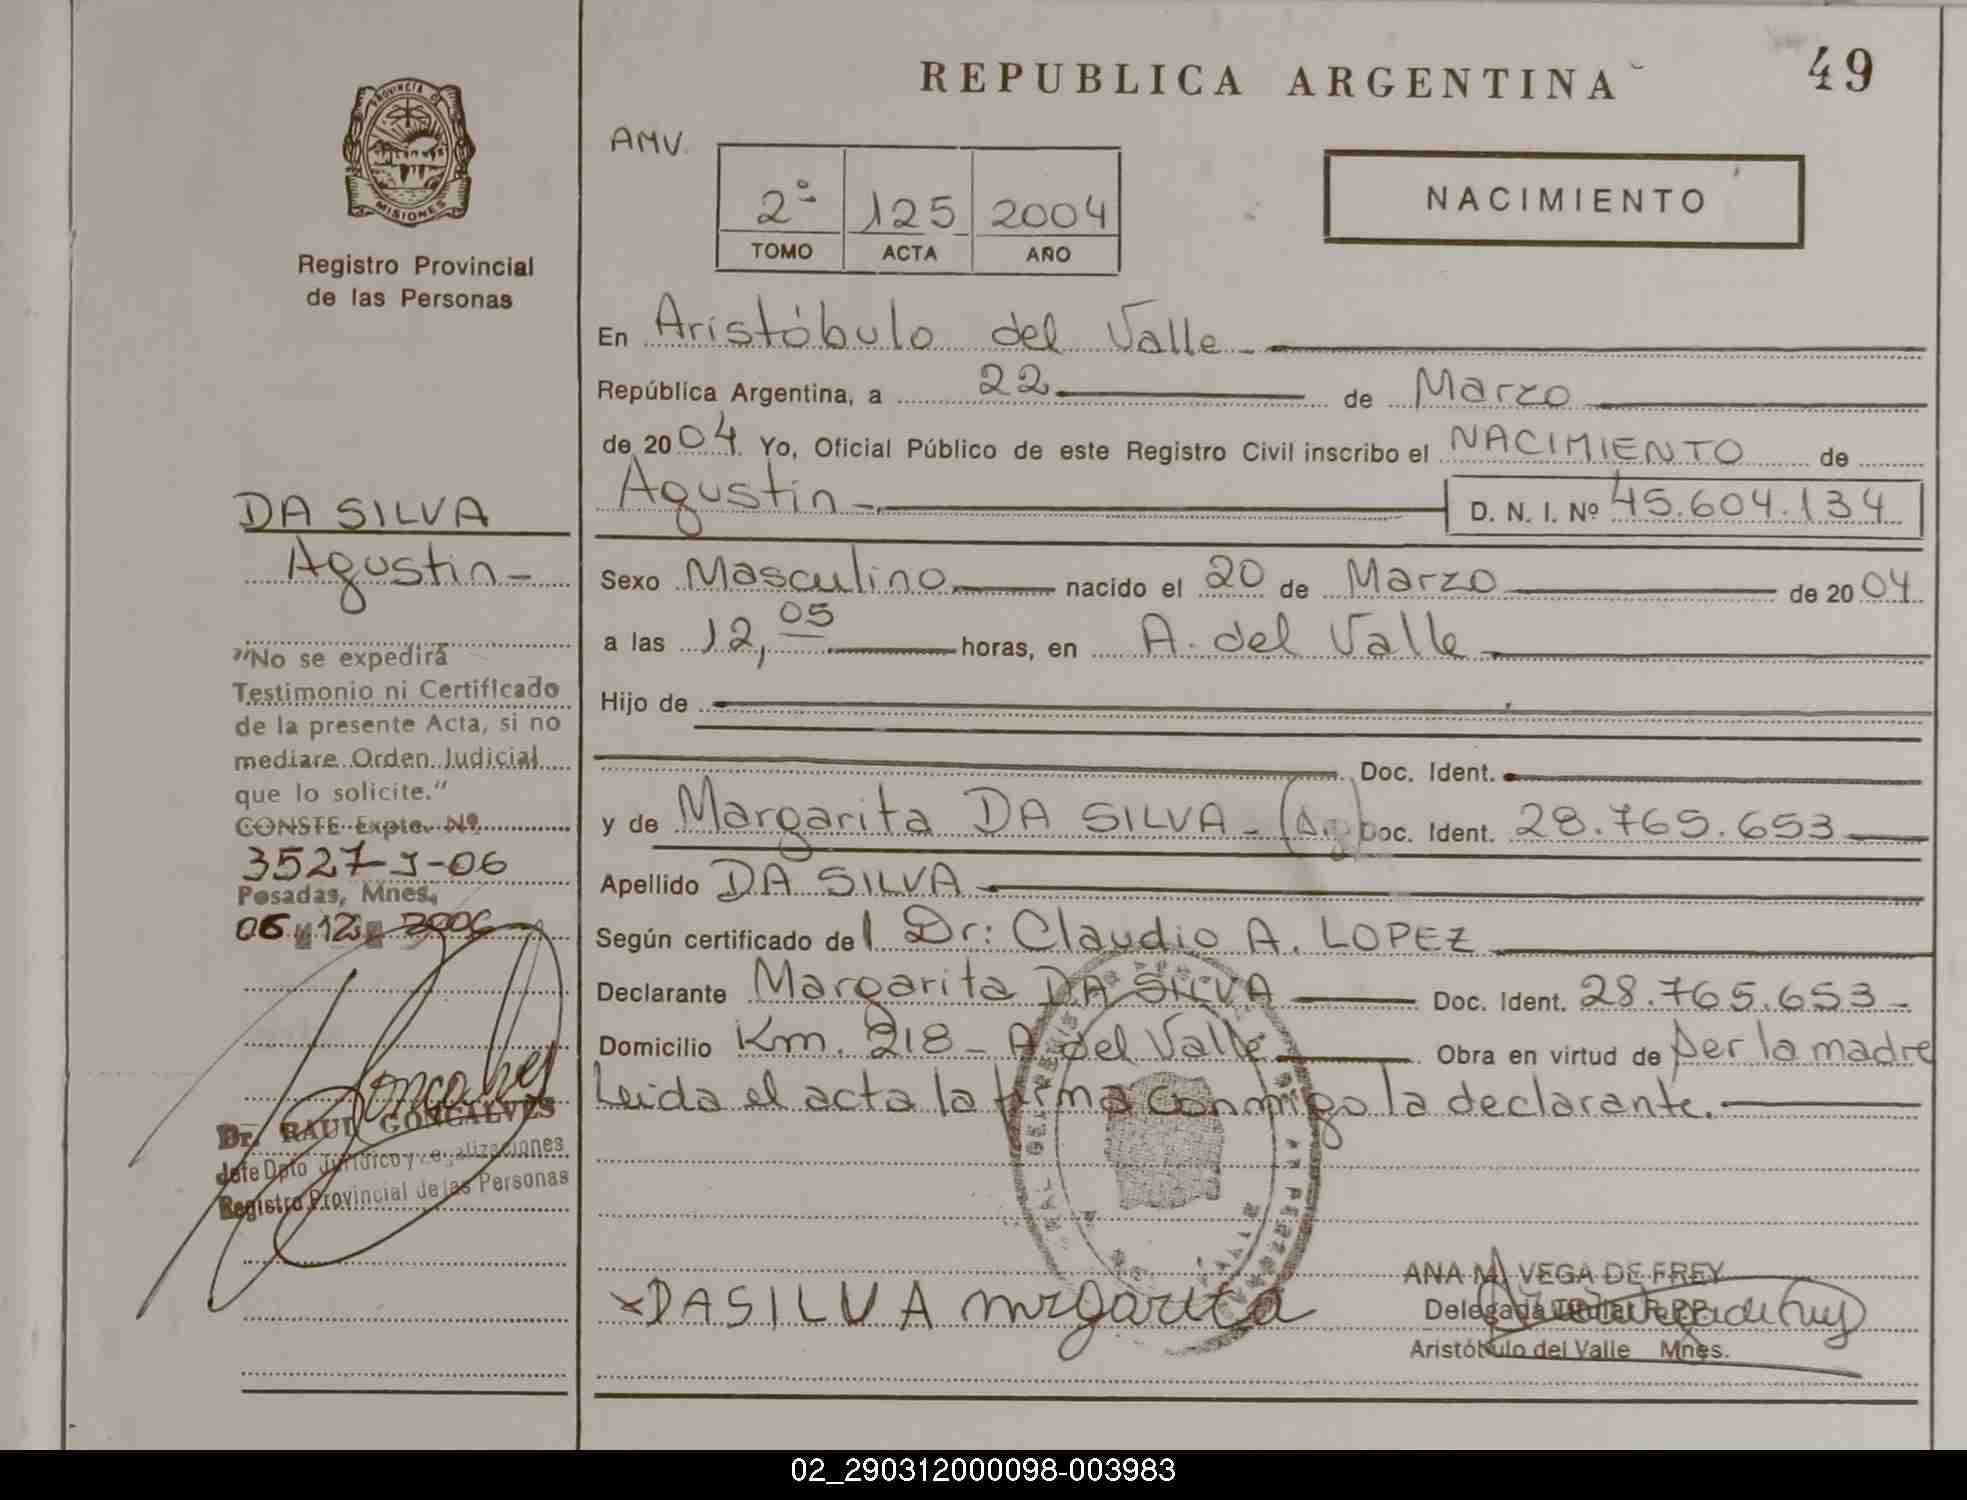 REPUBLICA ARGENTINA
49
PROVINCIA DE
MISIONES
Registro Provincial
de las Personas
AMV.
2º 125 2004
TOMO ACTA AÑO
NACIMIENTO
En Aristóbulo del Valle
República Argentina, a 22 de Marzo
de 2004 Yo, Oficial Público de este Registro Civil inscribo el NACIMIENTO de
Agustin D. N. I. Nº 45.604.134
Sexo Masculino nacido el 20 de Marzo de 2004
a las 12,05 horas, en A. del Valle
Hijo de
Doc. Ident.
y de Margarita DA SILVA - Doc. Ident. 28.765.653
Apellido DA SILVA
Según certificado del Dr: Claudio A. LOPEZ
Declarante Margarita DA SILVA Doc. Ident. 28.765.653-
Domicilio Km. 218 - A del Valle Obra en virtud de Ser la madre
Leida el acta la firma conmigo la declarante.
xDASILVA mrgarita
ANA M. VEGA DE FREY
Delegada Titular R.P.P.
Aristóbulo del Valle Mnes.
DA SILVA
Agustin-
"No se expedirá
Testimonio ni Certificado
de la presente Acta, si no
mediare Orden Judicial
que lo solicite."
CONSTE Expte. Nº
3527-J-06
Posadas, Mnes.
06 12 2006
Dr. RAUL GONCALVES
Jefe Dpto Jurídico y Legalizaciones
Registro Provincial de las Personas
02_290312000098-003983